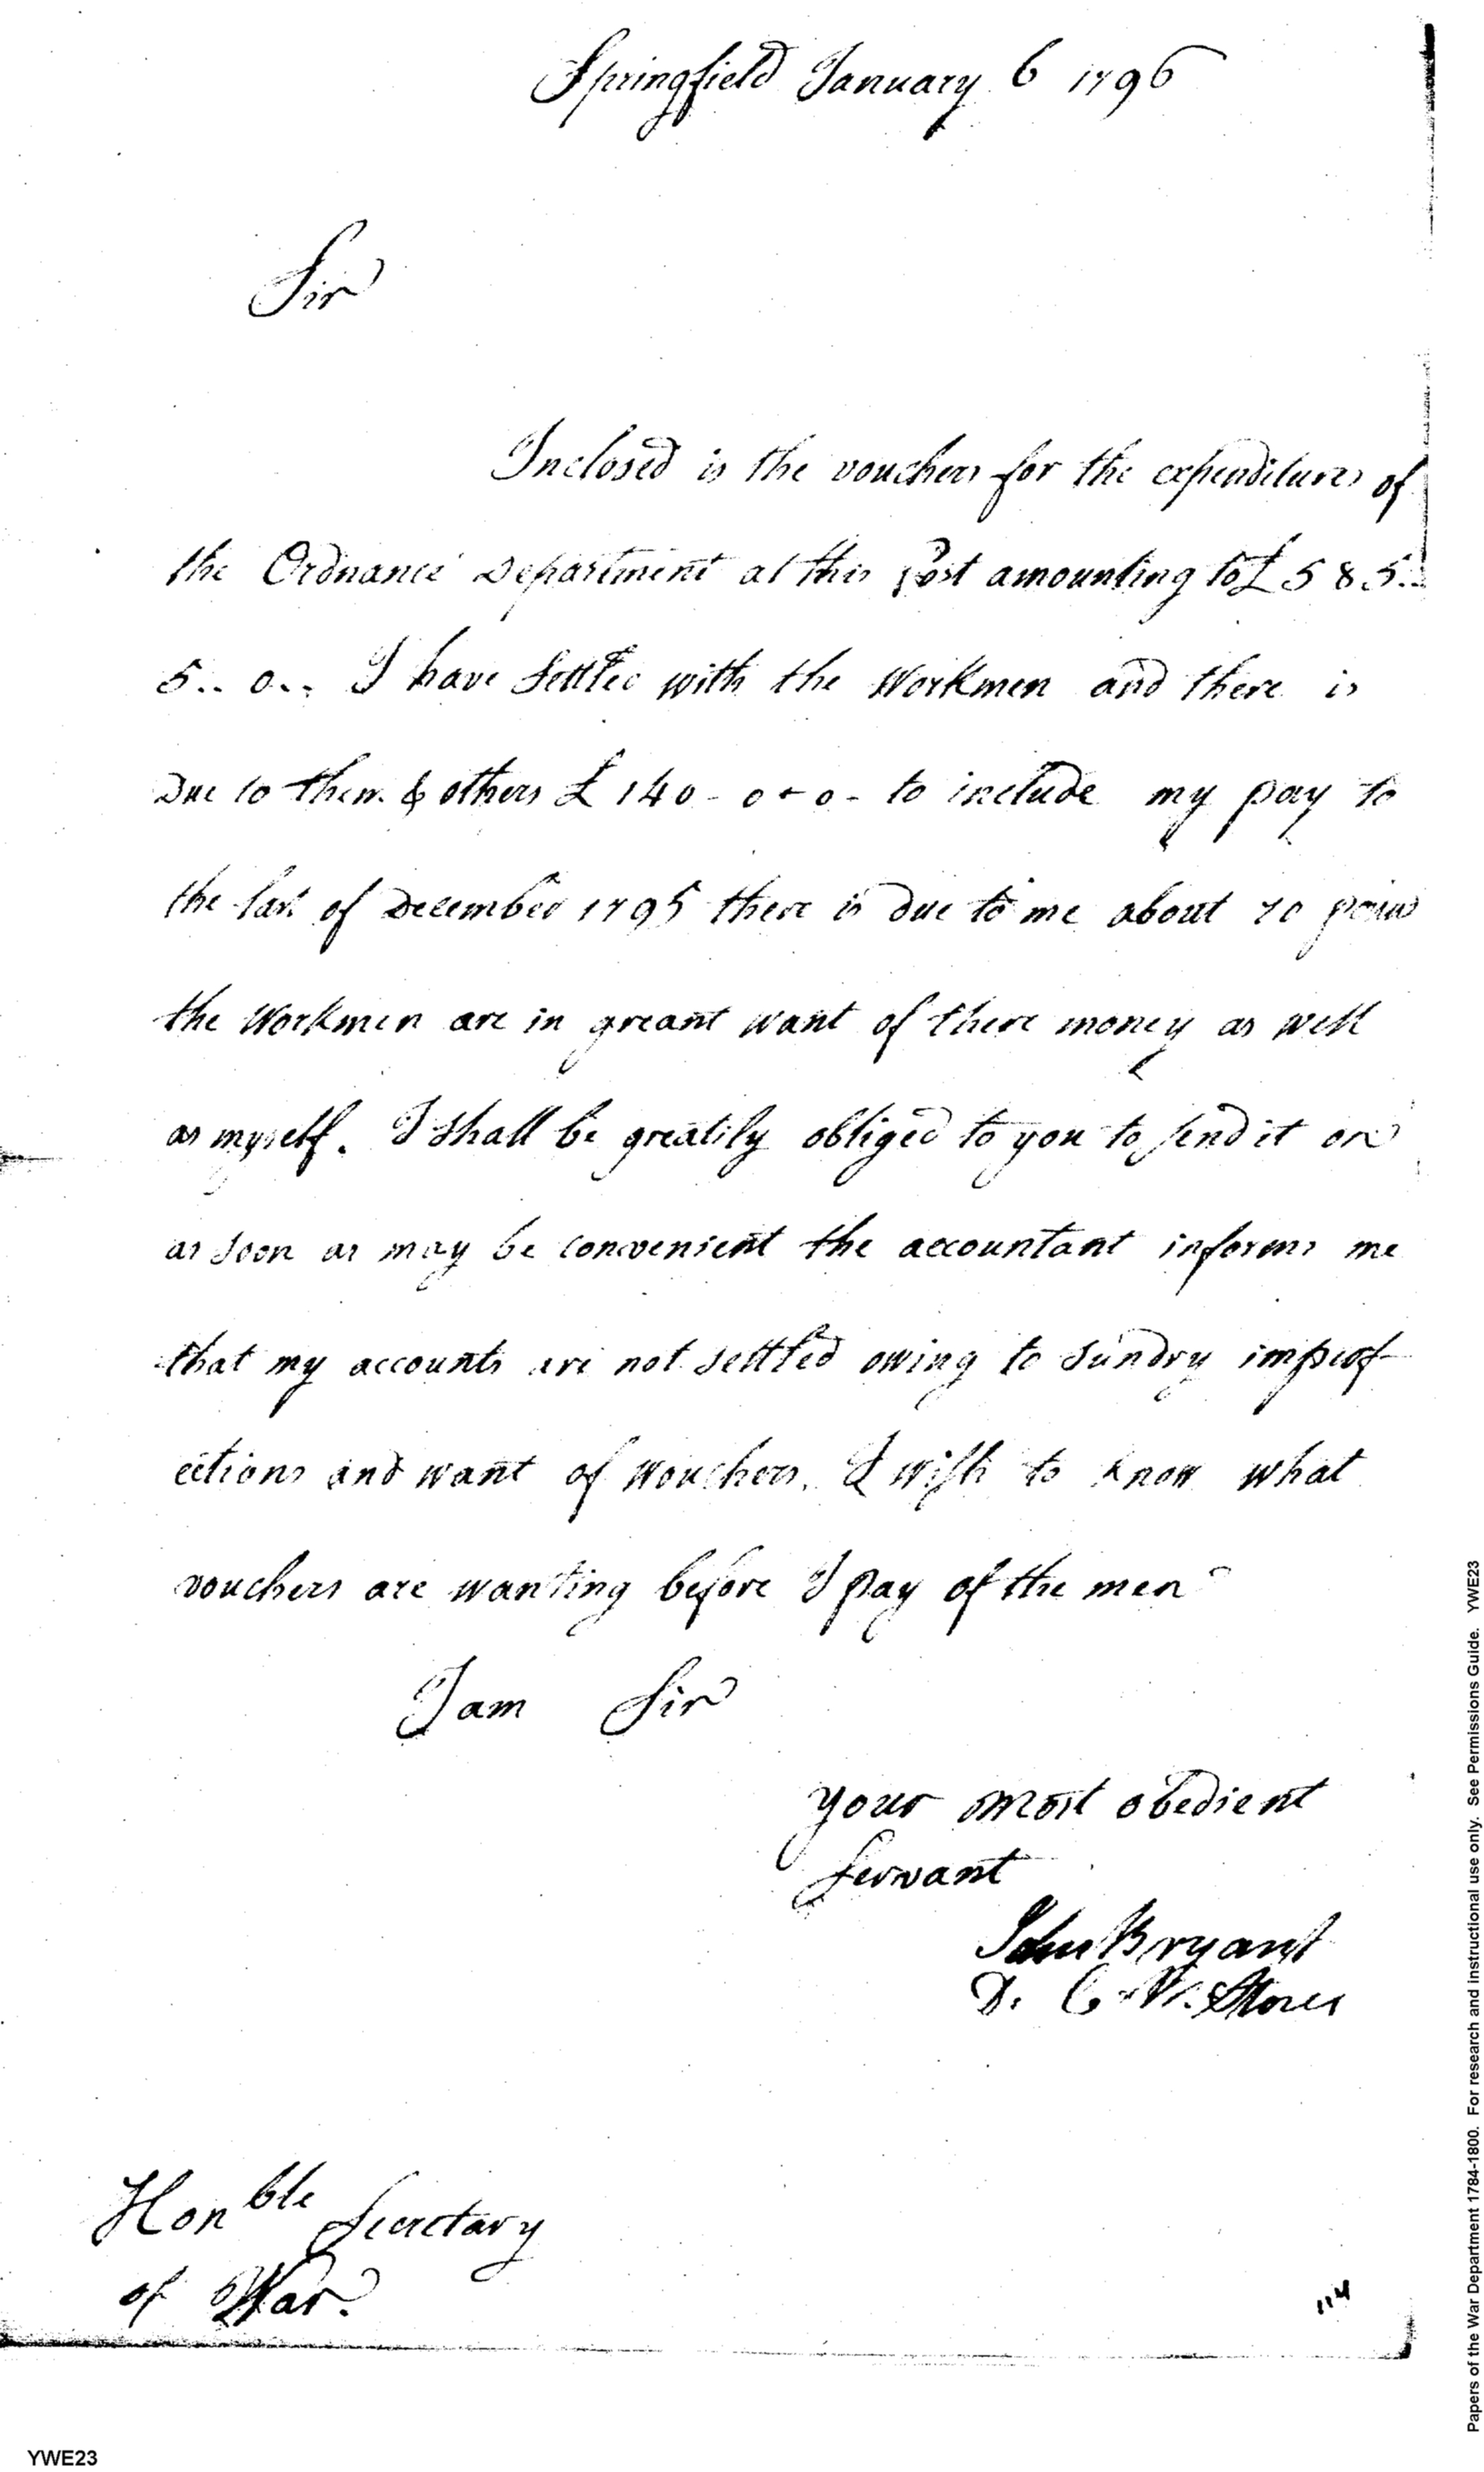 Springfield January 6 1796
Sir
Inclosed is the vouchers for the expenditures of
the Ordnance Department at this Post amounting to £ 585..
5.. 0.. I have Settled with the Workmen and there is
Due to them & others £ 140 - 0 - 0 - to include my pay to
the last of December 1795 there is due to me about 70
the Workmen are in greant want of there money as well
as myself. I shall be greatily obliged to you to send it on
as soon as may be convenient the accountant informs me
that my accounts are not settled owing to sundry imperf-
ections and want of Vouchers. I wish to know what
vouchers are wanting before I pay of the men
I am Sir
your most obedient
Servant
John Bryant
D. C. M. Stores
Honble Secretary
of War.
114
YWE23
Papers of the War Department 1784-1800. For research and instructional use only. See Permissions Guide. YWE23